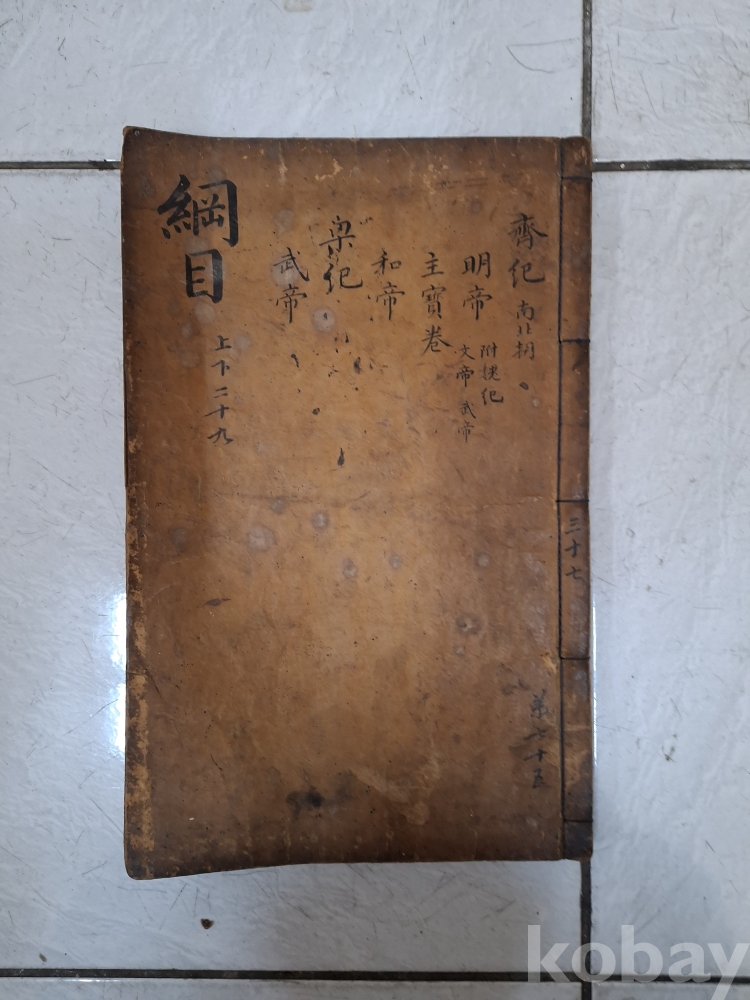 綱目
上下二十九
齊紀 南北朝
明帝 附魏紀
文帝 武帝
主寶卷
和帝
梁紀
武帝
三十七
第七十五
kobay